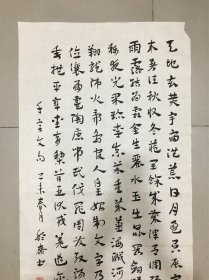 天地玄黄宇宙洪荒日月盈昃辰宿
来暑往秋收冬藏闰余成岁律吕调阳
雨露结为霜金生丽水玉生昆冈剑
称夜光果珍李柰菜重芥姜海咸河
翔龙师火帝鸟官人皇始制文字乃
位让国有虞陶唐吊民伐罪周发殷汤
垂拱平章爱育黎首臣伏戎羌遐迩
千字文句 乙未春月 书